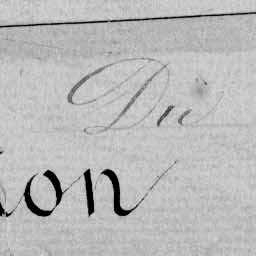 Du
ion